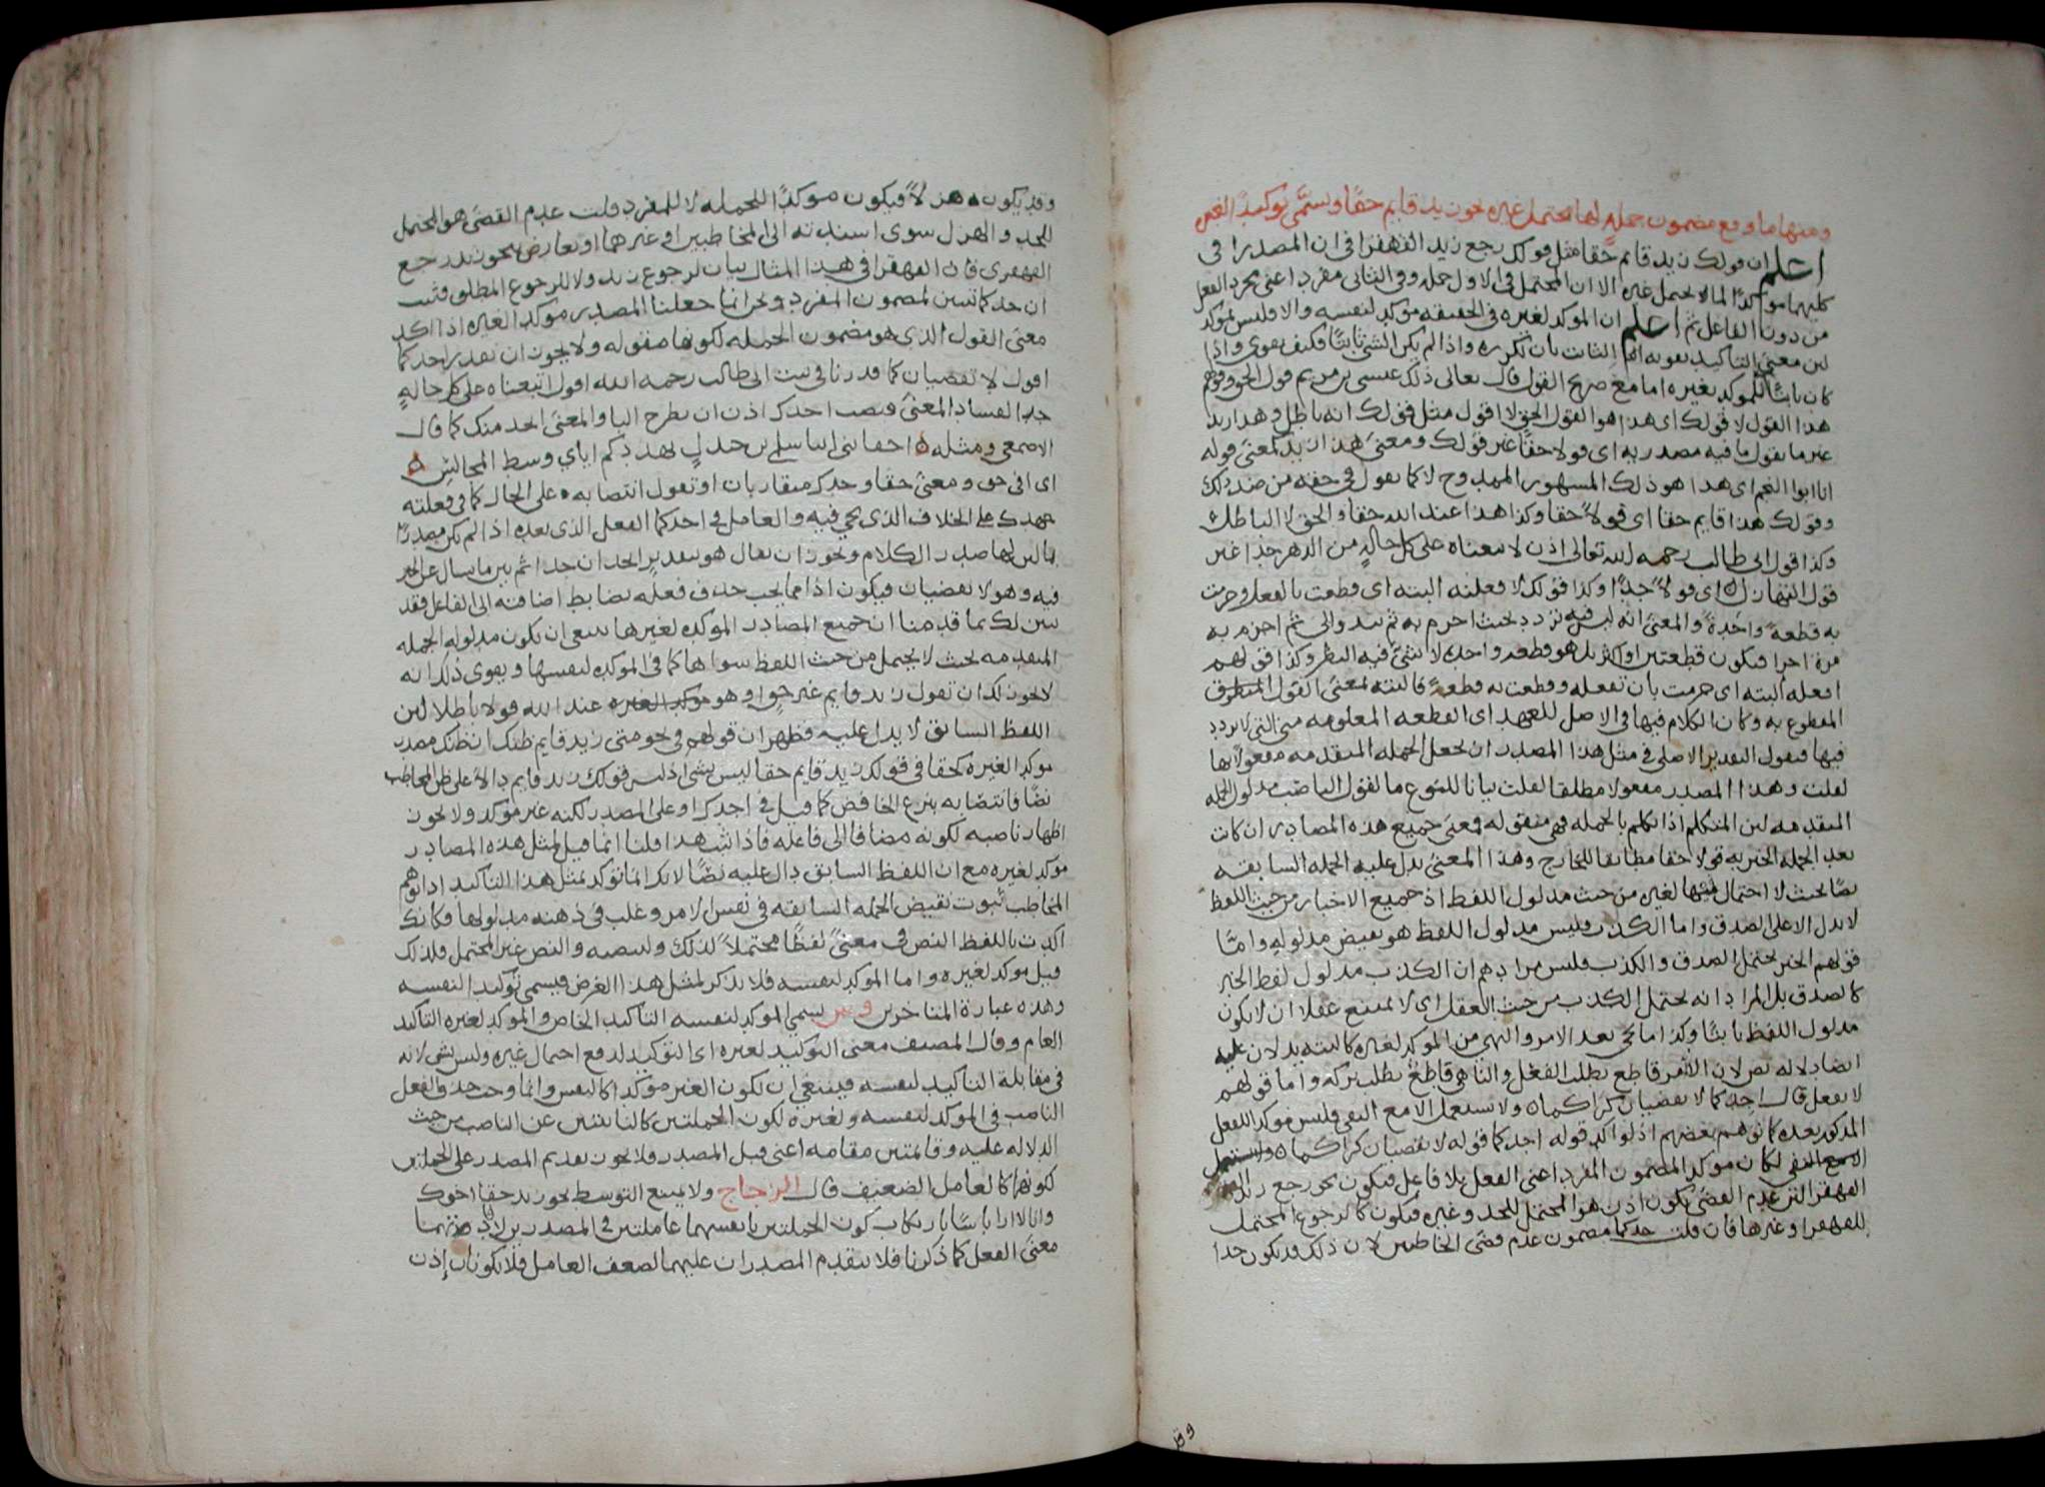 ومنها ما وقع مضمون جملة لها محتمل غيره نحو زيد قايم حقا ويسمى توكيدا لغيره
اعلم ان قولك زيد قائم حقا مثل قولك رجع زيد القهقرا في ان المصدرا في
كليهما موكدا لما لا يحتمل غيره الا ان المحتمل في الاول جمله وفي الثاني مفرد اعنى مجرد الفعل
من دون الفاعل ثم اعلم ان الموكد لغيره في الحقيقه موكد لنفسه والا فليس بموكد
لان معنى التاكيد تقويه الثابت بان تكرره واذا لم يكن الشي ثابتا فكيف يقوى واذا
كان ثابتا الموكد بغيره اما مع صريح القول قال تعالى ذلك عيسى بن مريم قول الحق وقولهم
هذا القول لا قولك اى هذا هو القول الحق لا اقول مثل قولك انه باطل وهدا زيد
غير ما تقول ما فيه مصدريه اى قولا حقا غير قولك ومعنى هذا زيد كمعنى قوله
انا ابوا النجم اى هدا هو ذلك المشهور الممدوح لا كما تقول في حقه من ضد ذلك
وقولك هدا قايم حقا اى قولا حقا وكذا هدا عبد الله حقا والحق لا الباطل
وكذا قول ابى طالب رحمه الله تعالى اذن لا تبعناه على كل حاله من الدهر جدا غير
قول التهازل اى قولا جدا وكذا قولك لا فعلته البته اى قطعت بالفعل وجزمت
به قطعة واحدة والمعنى انه ليس فيه تردد بحيث اجزم به ثم يبدو الى ثم اجزم به
مرة اخرا فيكون قطعتين او اكثر بل هو قطعه واحده لا يثنى فيه النظر وكذا قولهم
افعله البته اى جزمت بان تفعله وقطعت به قطعة فالبته لمعنى القول المنطوق
المقطوع به وكان الكلام فيها في الاصل للعهد اى القطعه المعلومه منى التي لا تردد
فيها فيقول التقدير الاصلى في مثل هذا المصدر ان نجعل الجمله المتقدمه مفعولا بها
لقلت وهذا المصدر مفعولا مطلقا لقلت بيانا للنوع مالقول الناصب مدلول الجمله
المتقدمه لان المتكلم اذا تكلم بالجمله فهي مقوله فمعنى جميع هذه المصادر ان كانت
بعد الجمله الخبريه قولا حقا مطابقا للخارج وهذا المعنى يدل عليه الجمله السابقه
نصا بحيث لا احتمال فيها لغيره من حيث مدلول اللفظ اذ جميع الاخبار من حيث اللفظ
لا يدل الا على الصدق واما الكذب فليس مدلول اللفظ هو نقيض مدلوله واما
قولهم الخبر يحتمل الصدق والكذب فليس مرادهم ان الكذب مدلول لفظ الخبر
كالصدق بل المراد انه يحتمل الكذب من حيث العقل اى لا يمتنع عقلا ان لا يكون
مدلول اللفظ ثابتا وكذا ما يجي بعد الامر والنهي من الموكد لغيره كالبته يدلان عليه
ايضا دلاله نص لان الامر قاطع بطلب الفعل والناهي قاطع بطلب تركه واما قولهم
لا يفعل قال اجدكما لا تقضيان كراكما ولا يستعمل الا مع النفي فليس موكدا للفعل
المذكور بعده كما توهم بعضهم اذ لو اكد قوله اجدكما قوله لا تقضيان كراكما
لكان موكد المضمون المفرد اعنى الفعل بلا فاعل فيكون نحو رجع زيد
القهقرا لان عدم القضى يكون اذن هو المحتمل للجد وغيره فيكون كالرجوع المحتمل
للقهقرا وغيرها فان قلت جدكما مضمون عدم قضى المخاطبين لان ذلك قد يكون جدا
وقد
وقد يكون هزلا فيكون موكدا للجمله لا للمفرد قلت عدم القضى هو المحتمل
للجد والهزل سوى اسندته الى المخاطبين او غيرهما او تعارض بنحو زيد رجع
القهقرى فان القهقرا في هذا المثال بيان لرجوع زيد ولا للرجوع المطلق فثبت
ان جدكما تبين لمضمون المفرد ونحن انما جعلنا المصدر موكدا لغيره اذا اكد
معنى القول الذى هو مضمون الجمله لكونها مقوله ولا يجوز ان تقدر اجدكما
اقول لا تقضيان كما قدرنا في بيت ابى طالب رحمه الله اقول اتبعناه على كل حالة
جدا لفساد المعنى فنصب اجدكما اذن ان بطرح البا والمعنى ابجد منك كما قال
الاصمعي ومثله احقا بنى ابنا سلمى بن جندل تهددكم اياى وسط المجالس
اى افى حق ومعنى حقا وجدكما متقاربان او تقول انتصابه على الحال كما في فعلته
جهدك على الخلاف الذى يجي فيه والعامل في اجدكما الفعل الذى بعده اذا لم يكن مصدرا
بما لن لها صدر الكلام ويجوز ان يقال هو بتقدير اتجدان جدا ثم بين ما يسال عن الجد
فيه وهو لا تقضيان فيكون اذا مما يجب حذف فعله بضابط اضافته الى الفاعل فقد
تبين لك بما قدمنا ان جميع المصادر الموكده لغيرها ينبغي ان يكون مدلوله الجمله
المتقدمه بحيث لا يحتمل من حيث اللفظ سواها كما في الموكده لنفسها ويقوى ذلك انه
لا يجوز لك ان تقول زيد قايم غير حق او هو عبد الله قولا باطلا لان
اللفظ السابق لا يدل عليه فظهر ان قولهم في نحو متى زيد قايم ظنك ان ظنك مصدر
موكد لغيره كحقا في قولك زيد قايم حقا ليس بشي اذ ليس قولك زيد قايم دالا على ظن المخاطب
نصا فانتصابه بنزع الخافض كما قيل في اجدكما او على المصدر لكنه غير موكد ولا يجوز
اظهار ناصبه لكونه مضافا الى فاعله فاذا ثبت هدا قلنا انما قيل لمثل هذه المصادر
موكد لغيره مع ان اللفظ السابق دال عليه نصا لانك انما توكد بمثل هذا التاكيد اذا توهم
المخاطب ثبوت نقيض الجمله السابقه في نفس الامر وغلب في ذهنه مدلولها فكانك
اكدت باللفظ النص في معنى لفظا محتملا لذلك ولنصبه والنص غير المحتمل فلذلك
قيل موكد لغيره واما الموكد لنفسه فلا يذكر لمثل هذا الغرض فيسمى توكيدا لنفسه
وهذه عبارة المتاخرين يسمى الموكد لنفسه التاكيد الخاص والموكد لغيره التاكيد
العام وقال المصنف معنى التوكيد لغيره اى التوكيد لدفع احتمال غيره وليس بشي لانه
في مقابلة التاكيد لنفسه فينبغي ان تكون الغير موكدا كالنفس وانما وجب حذف الفعل
الناصب في الموكد لنفسه ولغيره لكون الجملتين كالنايبتين عن الناصب من حيث
الدلاله عليه وقائمتين مقامه اعنى قبل المصدر فلا يجوز تقديم المصدر على الجملتين
لكونهما كالعامل الضعيف قال الزجاج ولا يمتنع التوسط نحو زيد حقا اخوك
وانا لا ارا باسا بارتكاب كون الجملتين بانفسهما عاملتين في المصدرين لافادتهما
معنى الفعل كما ذكرنا فلا يتقدم المصدران عليهما لضعف العامل فلا يكونان إذن